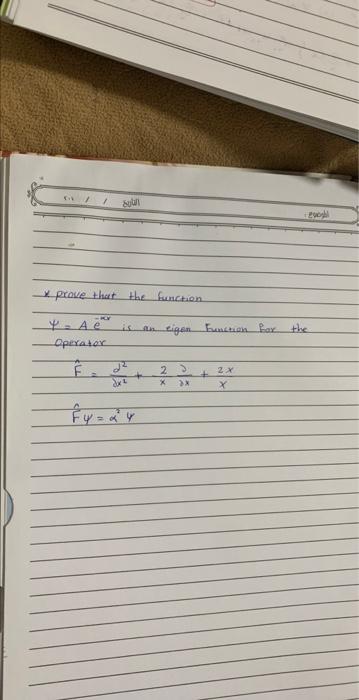 التاريخ / / ٢٠١
الموضوع:
* prove that the function
Ψ = A e^-αx is an eigen function for the
operator
F̂ = ∂²/∂x² + 2/x ∂/∂x + 2x/x
F̂Ψ = α²Ψ